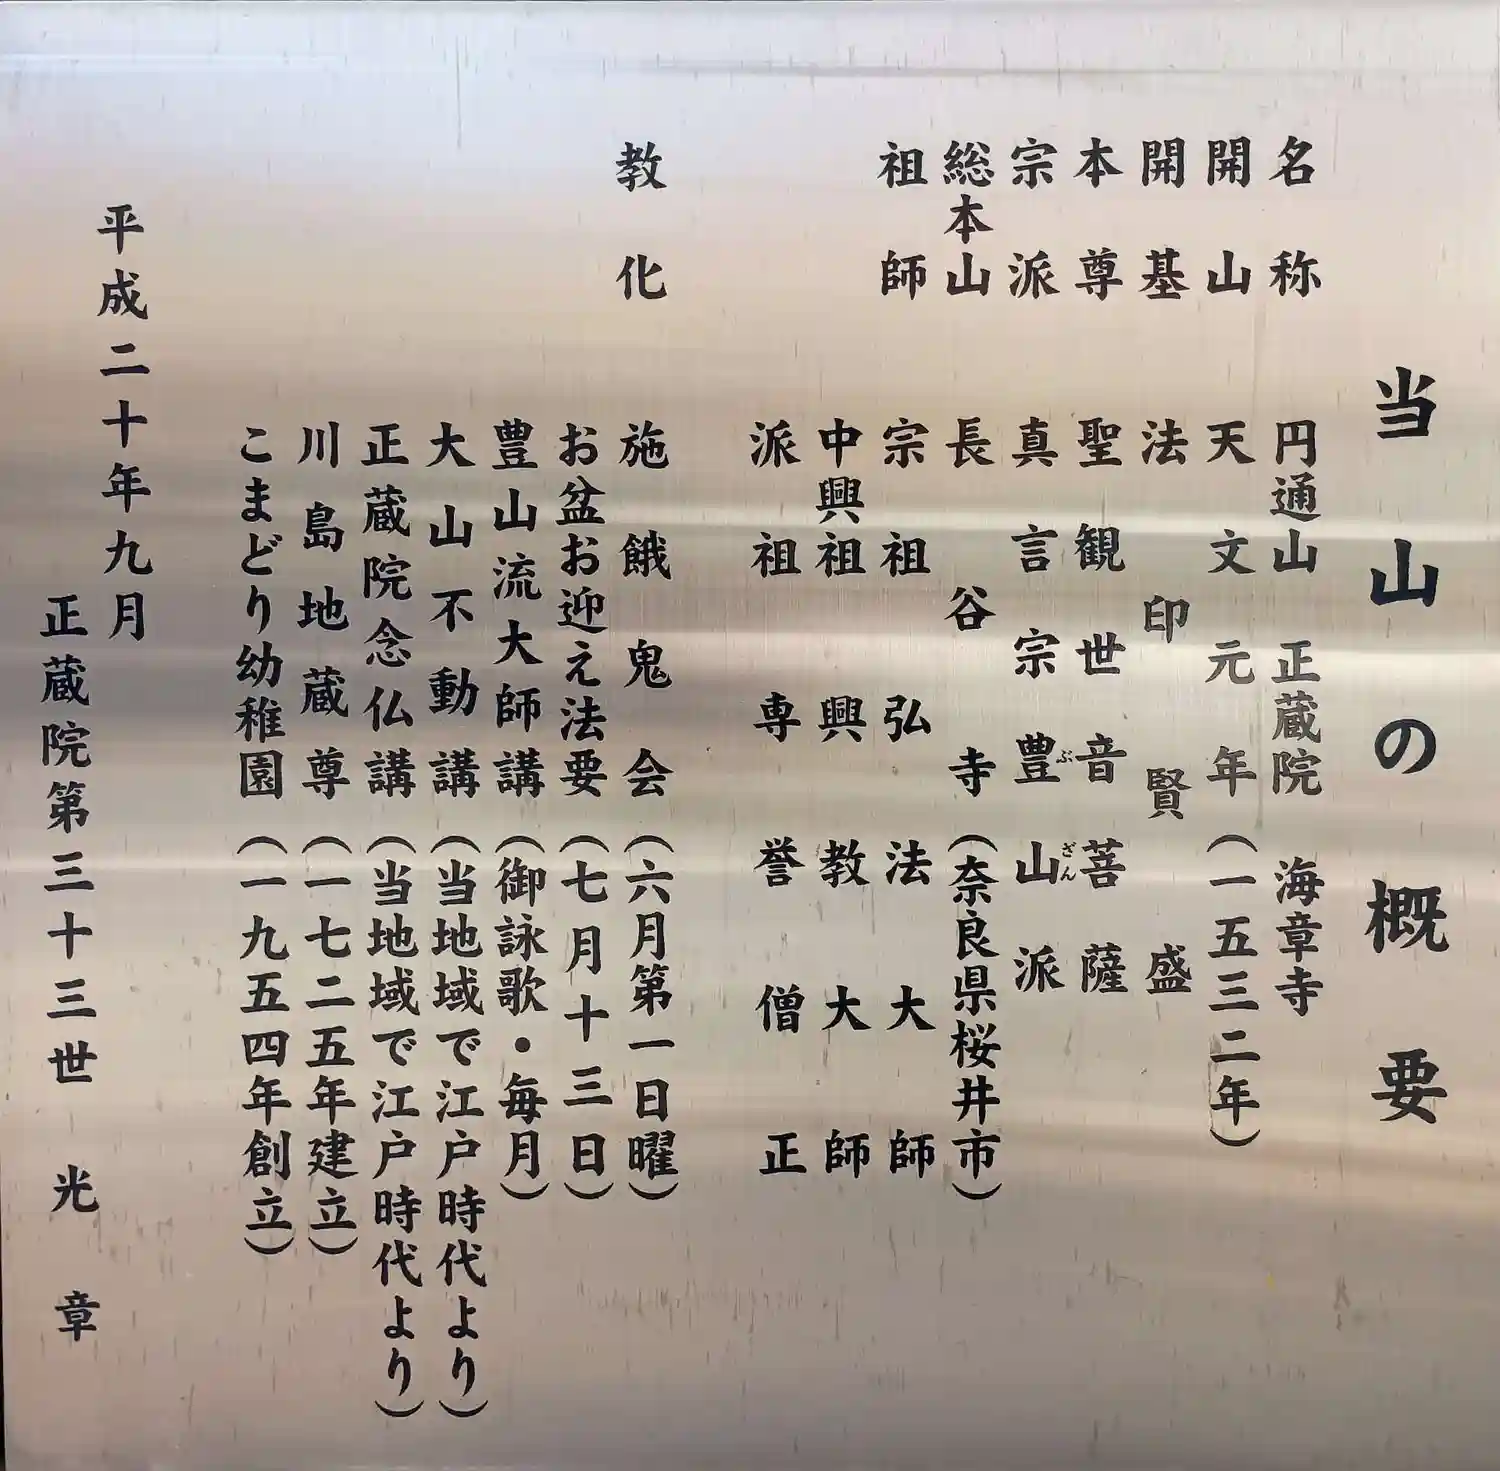 当山の概要
名称 円通山 正蔵院 海章寺
開山 天文元年(一五三二年)
開基 法印賢盛
本尊 聖観世音菩薩
宗派 真言宗豊山派
ぶざん
総本山 長谷寺(奈良県桜井市)
祖師 宗祖 弘法大師
中興祖 興教大師
派祖 専誉僧正
教化 施餓鬼会(六月第一日曜)
お盆お迎え法要(七月十三日)
豊山流大師講(御詠歌・毎月)
大山不動講(当地域で江戸時代より)
正蔵院念仏講(当地域で江戸時代より)
川島地蔵尊(一七二五年建立)
こまどり幼稚園(一九五四年創立)
平成二十年九月
正蔵院第三十三世 光章